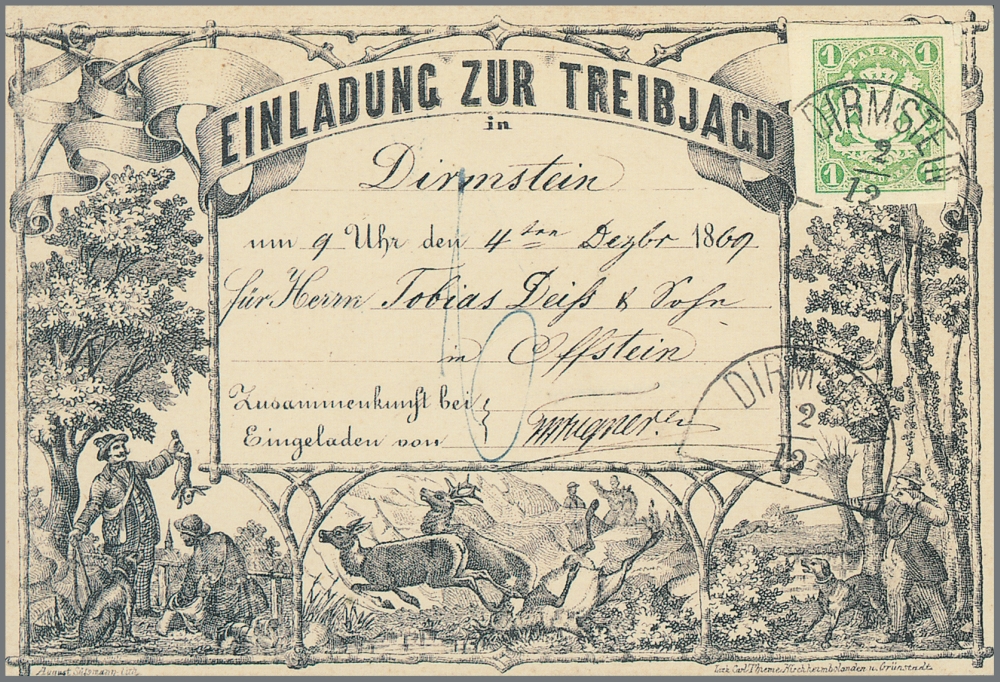 EINLADUNG ZUR TREIBJAGD
in
Dirmstein
um 9 Uhr den 4ten Dezbr 1869
für Herrn Tobias Deiß & Sohn
in Offstein
Zusammenkunft bei
Eingeladen von
1 BAYERN 1
1 1
DIRMSTEIN
2
12
DIRM
2
12
August lith.
Lith. Carl Thieme, Kirchheimbolanden u. Grünstadt.